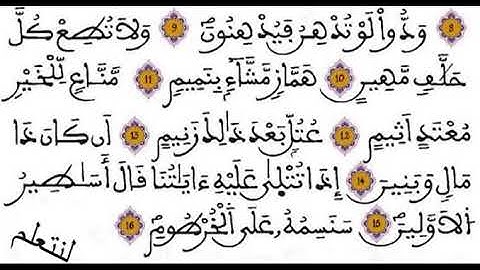 8 وَدُّواْ لَوْ تُدْهِنُ فَيُدْهِنُونَ 9 وَلَا تُطِعْ كُلَّ
حَلَّافٍ مَّهِينٍ 10 هَمَّازٍ مَّشَّآءِۭ بِنَمِيمٍ 11 مَّنَّاعٍ لِّلْخَيْرِ
مُعْتَدٍ اَثِيمٍ 12 عُتُلِّۭ بَعْدَ ذَٰلِكَ زَنِيمٍ 13 اَن كَانَ ذَا
مَالٍ وَبَنِينَ 14 إِذَا تُتْلَىٰ عَلَيْهِ ءَايَٰتُنَا قَالَ أَسَٰطِيرُ
اُ۬لَاوَّلِينَ 15 سَنَسِمُهُۥ عَلَى اَ۬لْخُرْطُومِ 16
لنتعلم